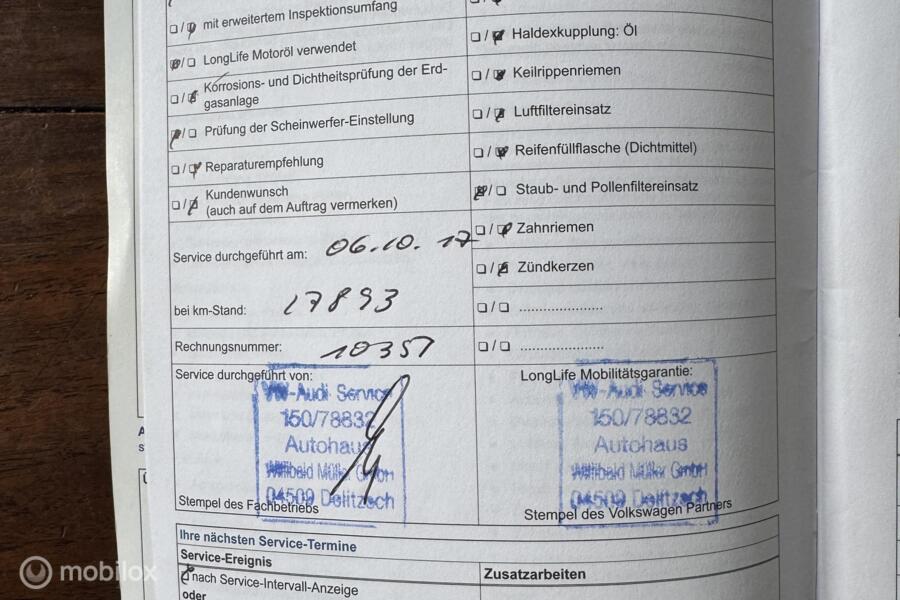 mit erweitertem Inspektionsumfang
LongLife Motoröl verwendet
Korrosions- und Dichtheitsprüfung der Erd-
gasanlage
Prüfung der Scheinwerfer-Einstellung
Reparaturempfehlung
Kundenwunsch
(auch auf dem Auftrag vermerken)
Haldexkupplung: Öl
Keilrippenriemen
Luftfiltereinsatz
Reifenfüllflasche (Dichtmittel)
Staub- und Pollenfiltereinsatz
Zahnriemen
Zündkerzen
Service durchgeführt am: 06.10.17
bei km-Stand: 17893
Rechnungsnummer: 10351
Service durchgeführt von:
VW-Audi Service
150/78832
Autohaus
Willibald Müller GmbH
04509 Delitzsch
Stempel des Fachbetriebs
LongLife Mobilitätsgarantie:
VW-Audi Service
150/78832
Autohaus
Willibald Müller GmbH
04509 Delitzsch
Stempel des Volkswagen Partners
Ihre nächsten Service-Termine
Service-Ereignis
nach Service-Intervall-Anzeige
oder
Zusatzarbeiten
mobilox